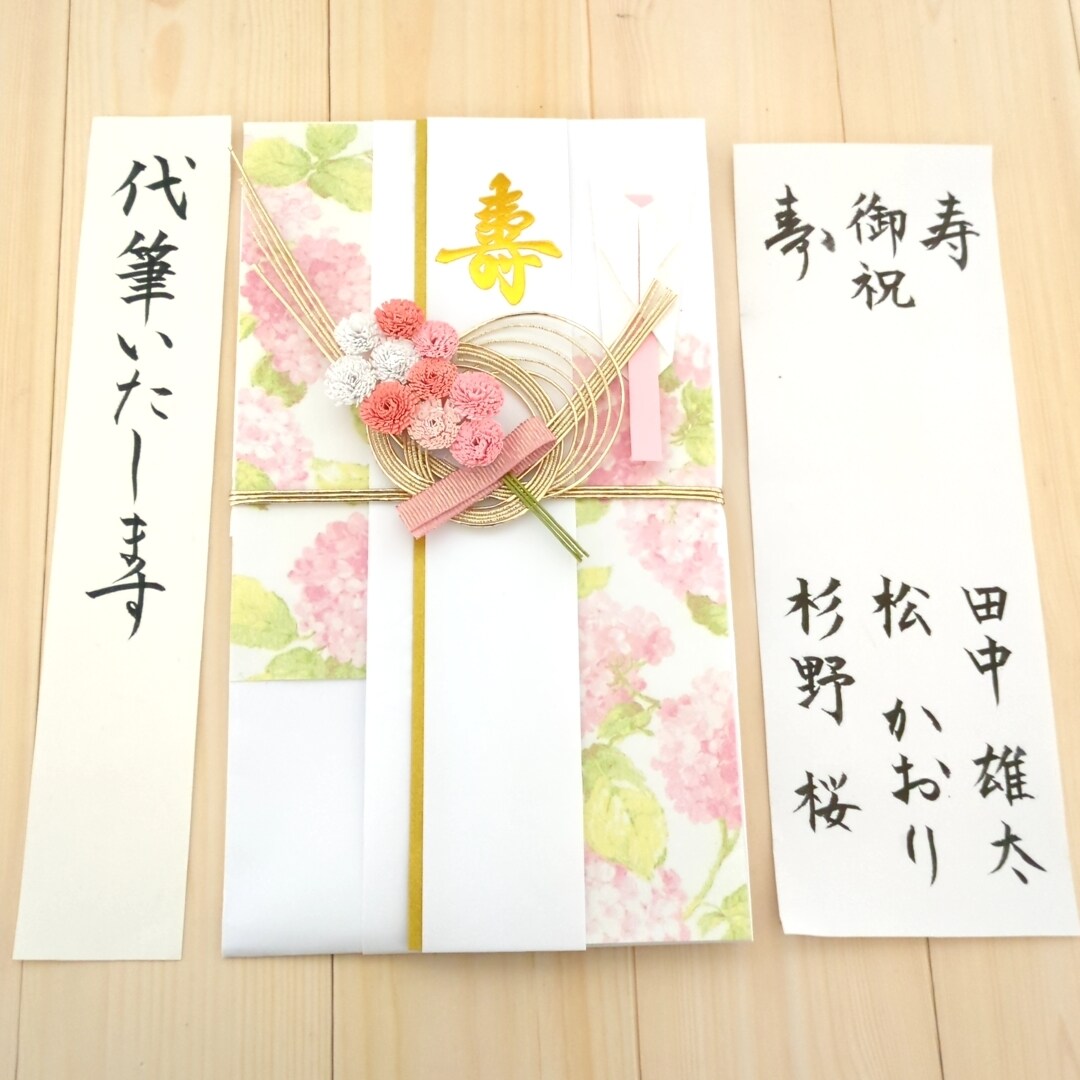 代筆いたします
壽
寿
御祝
壽
田中 雄太
松 かおり
杉野 桜